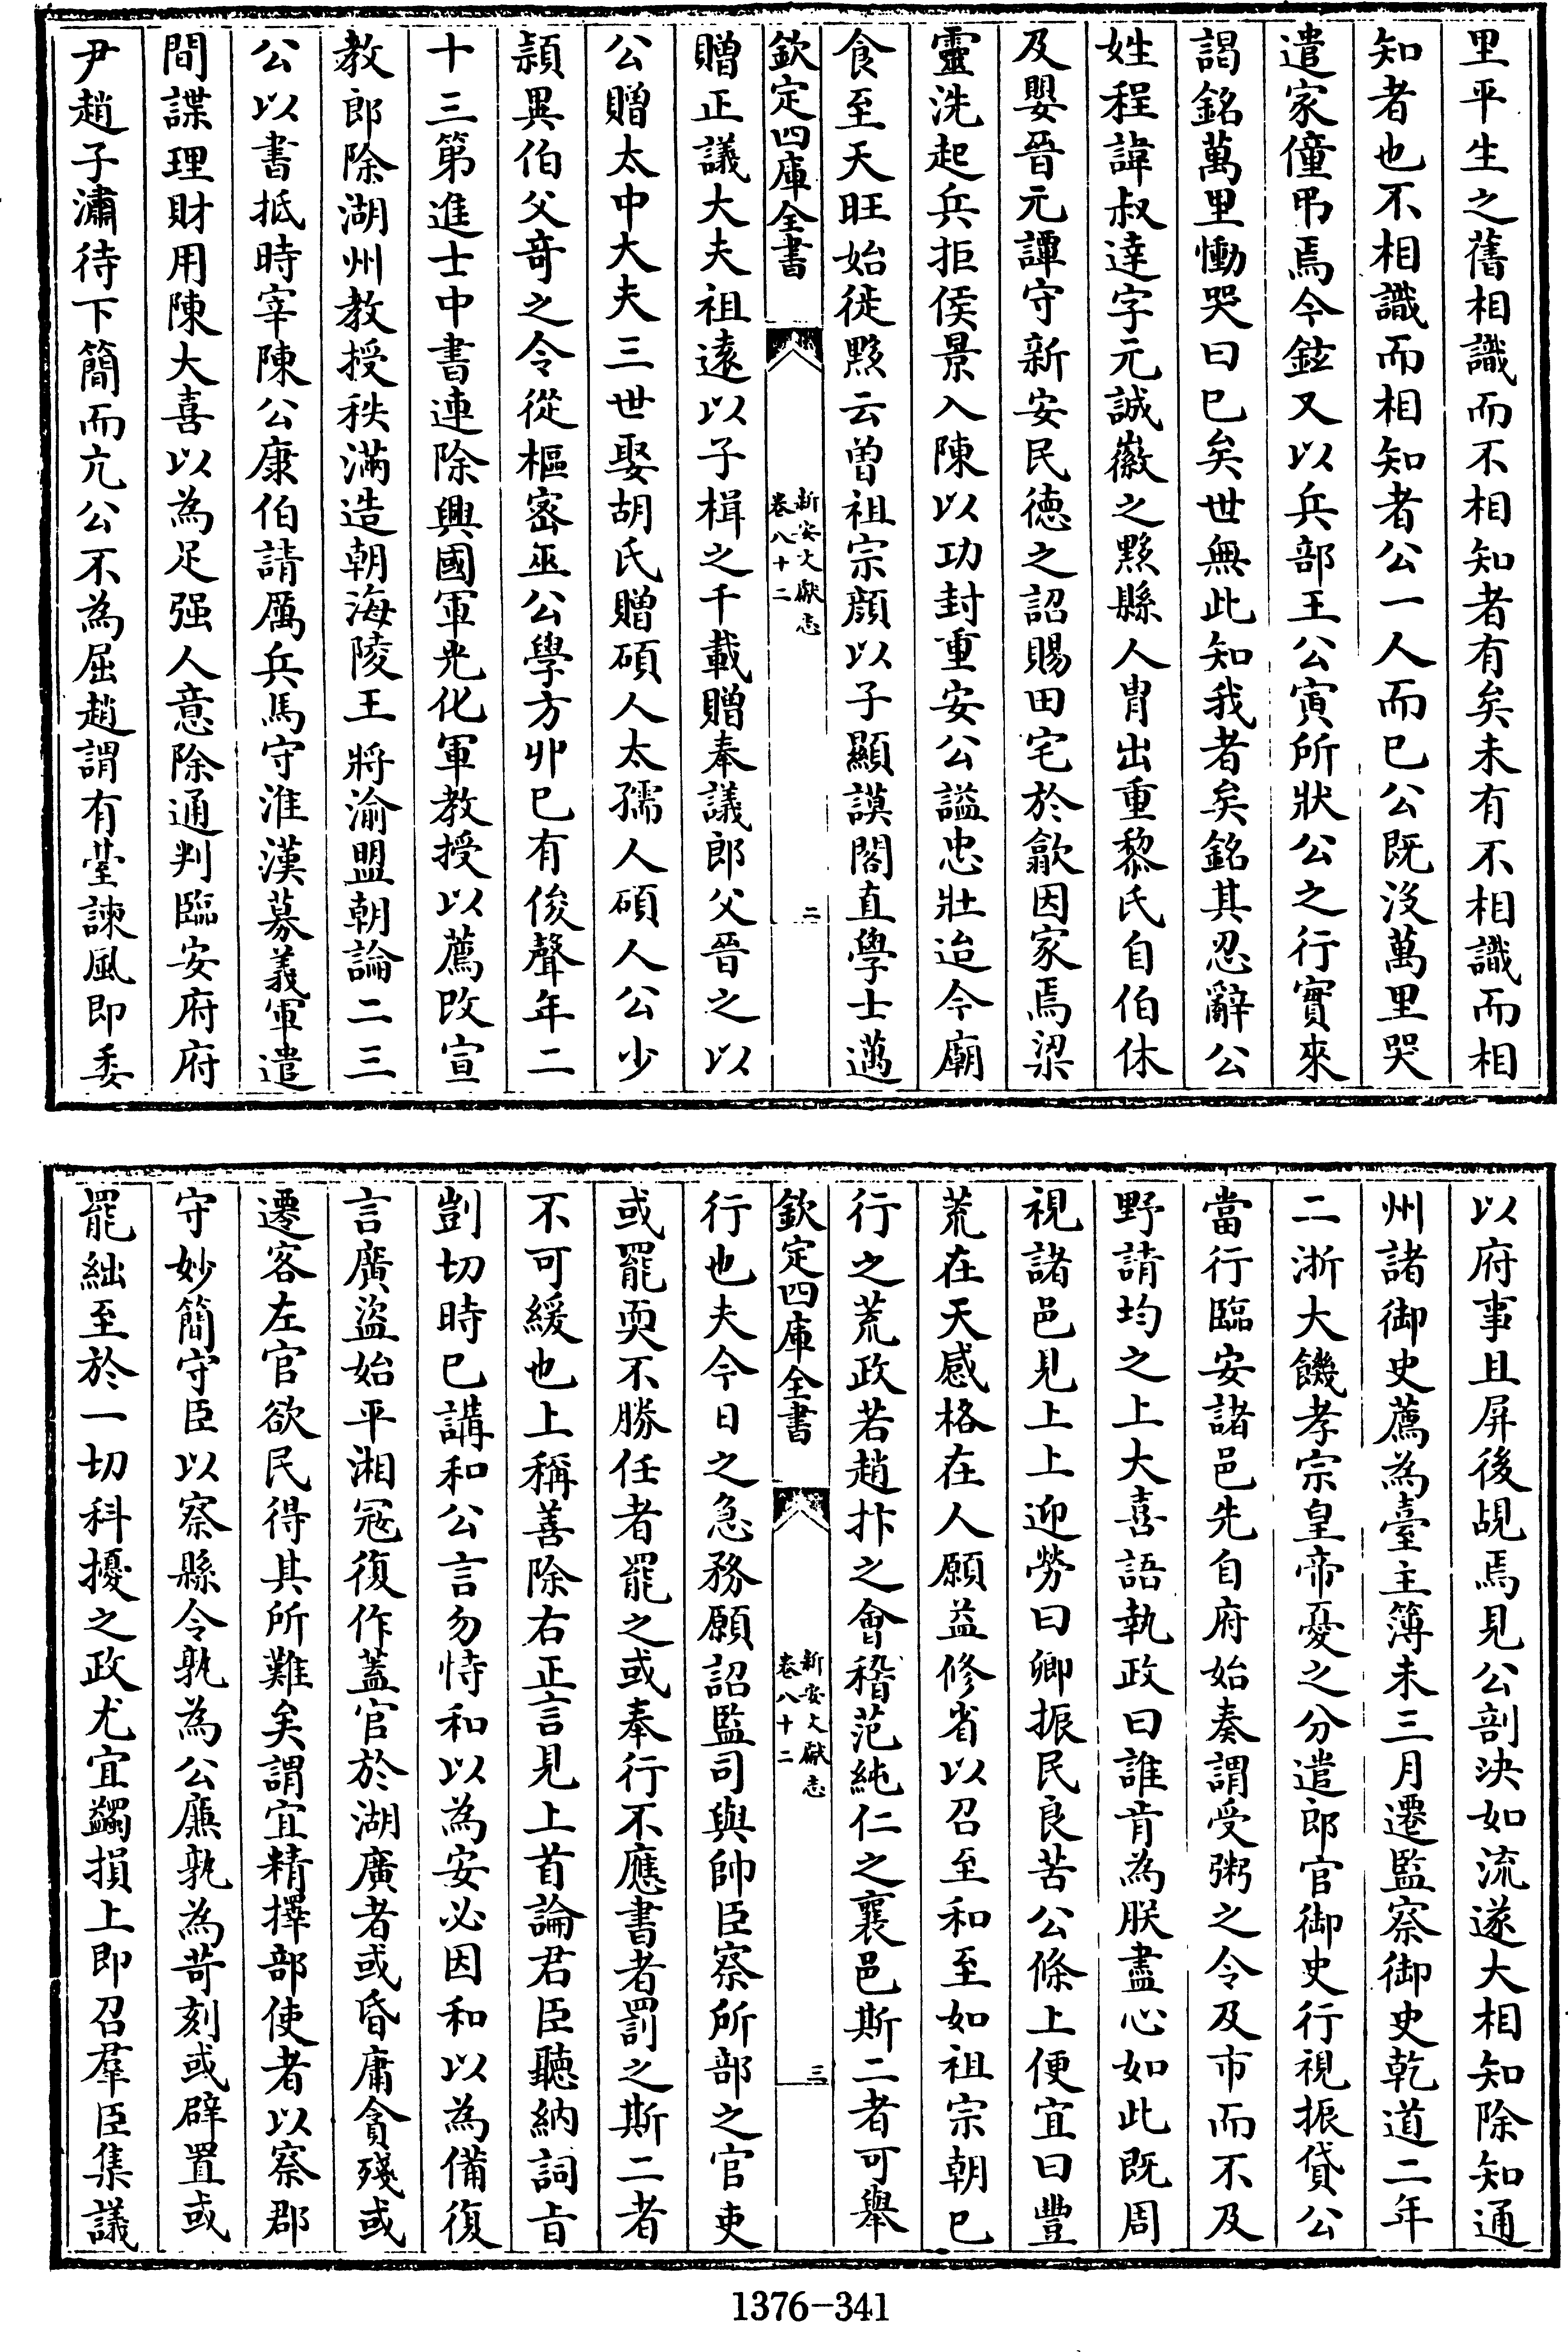 里平生之舊相識而不相知者有矣未有不相識而相
知者也不相識而相知者公一人而已公既沒萬里哭
遣家僮弔焉今鉉又以兵部王公寅所狀公之行實來
謁銘萬里慟哭曰已矣世無此知我者矣銘其忍辭公
姓程諱叔達字元誠徽之黟縣人胄出重黎氏自伯休
及嬰晉元譚守新安民德之詔賜田宅於歙因家焉梁
靈洗起兵拒侯景入陳以功封重安公謚忠壯迨今廟
食至天旺始徙黟云曾祖宗顏以子顯謨閣直學士邁
欽定四庫全書
新安文獻志
卷八十二
二
贈正議大夫祖遠以子楫之千載贈奉議郎父晉之以
公贈太中大夫三世娶胡氏贈碩人太孺人碩人公少
穎異伯父奇之令從樞密巫公學方丱已有俊聲年二
十三第進士中書連除興國軍光化軍教授以薦改宣
教郎除湖州教授秩滿造朝海陵王將渝盟朝論二三
公以書抵時宰陳公康伯請厲兵馬守淮漢募義軍遣
間諜理財用陳大喜以為足强人意除通判臨安府府
尹趙子潚待下簡而亢公不為屈趙謂有臺諫風即委
以府事且屏後覘焉見公剖決如流遂大相知除知通
州諸御史薦為臺主簿未三月遷監察御史乾道二年
二浙大饑孝宗皇帝憂之分遣郎官御史行視振貸公
當行臨安諸邑先自府始奏謂受粥之令及市而不及
野請均之上大喜語執政曰誰肯為朕盡心如此既周
視諸邑見上上迎勞曰卿振民良苦公條上便宜曰豐
荒在天感格在人願益修省以召至和至如祖宗朝已
行之荒政若趙抃之會稽范純仁之襄邑斯二者可舉
欽定四庫全書
新安文獻志
卷八十二
三
行也夫今日之急務願詔監司與帥臣察所部之官吏
或罷耎不勝任者罷之或奉行不應書者罰之斯二者
不可緩也上稱善除右正言見上首論君臣聽納詞旨
剴切時已講和公言勿恃和以為安必因和以為備復
言廣盜始平湘冦復作蓋官於湖廣者或昏庸貪殘或
遷客左官欲民得其所難矣謂宜精擇部使者以察郡
守妙簡守臣以察縣令孰為公廉孰為苛刻或辟置或
罷絀至於一切科擾之政尤宜蠲損上即召羣臣集議
1376-341